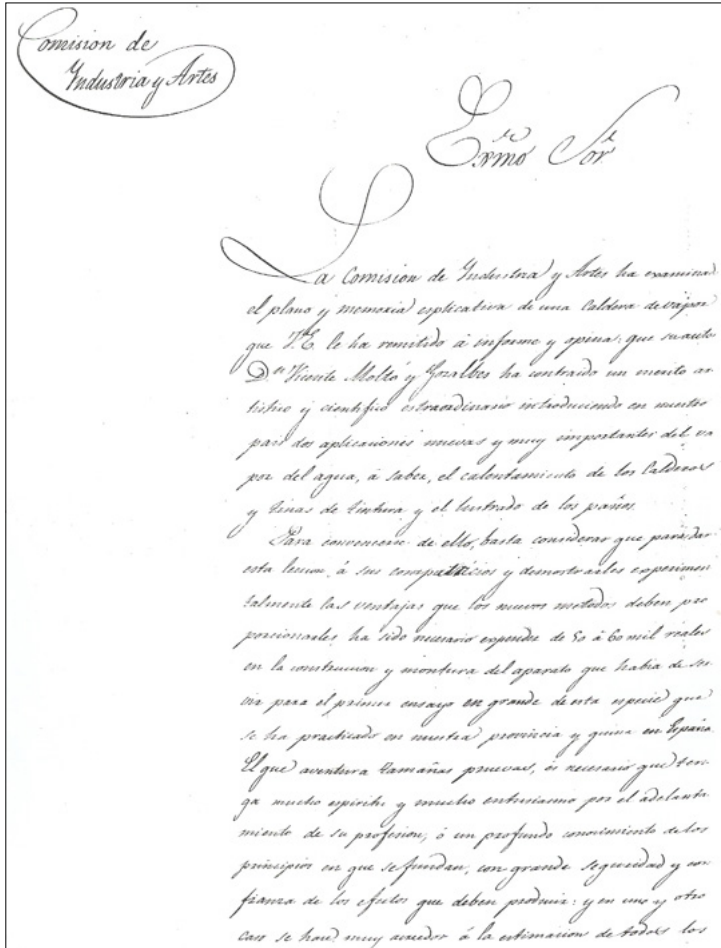 Comision de
Industria y Artes
Exmo Sor
La Comision de Industria y Artes ha examinad
el plano y memoria esplicativa de una Caldera de vapor
que V.E. le ha remitido á informe y opina: que su auto
Dn Vicente Moltó y Jozalbes ha contraido un merito ar
tistico y cientifico estraordinario introduciendo en nuestro
pais dos aplicaciones nuevas y muy importantes del va
por del agua, á saber, el calentamiento de las Calderas
y tinas de tintura y el lustrado de los paños.
Para convencerse de ello, basta considerar que para dar
esta leccion á sus compatricios y demostrarles esperimen
talmente las ventajas que los nuevos metodos deben pro
porcionarles, ha sido necesario expender de 50 á 60 mil reales
en la construccion y montura del aparato que habia de ser
vir para el primer ensayo en grande de esta especie que
se ha practicado en nuestra provincia y quiza en España.
El que aventura tamañas pruevas, es necesario que ten
ga mucho espiritu y mucho entusiasmo por el adelanta
miento de su profesion, ó un profundo conocimiento de los
principios en que se fundan, con grande seguridad y con
fianza de los efectos que deben producir: y en uno y otro
caso se hace muy acreedor á la estimacion de todos los